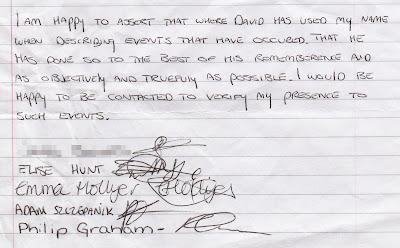 I AM HAPPY TO ASSERT THAT WHERE DAVID HAS USED MY NAME
WHEN DESCRIBING EVENTS THAT HAVE OCCURED. THAT HE
HAS DONE SO TO THE BEST OF HIS REMEMBERENCE AND
AS OBJECTIVELY AND TRUEFULLY AS POSSIBLE. I WOULD BE
HAPPY TO BE CONTACTED TO VERIFY MY PRESENCE TO
SUCH EVENTS.
ELISE HUNT
Emma Mollyer
ADAM SZCZEPANIK
Philip Graham -